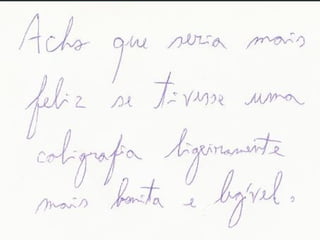 Acho que seria mais
feliz se tivesse uma
caligrafia ligeiramente
mais bonita e legível.